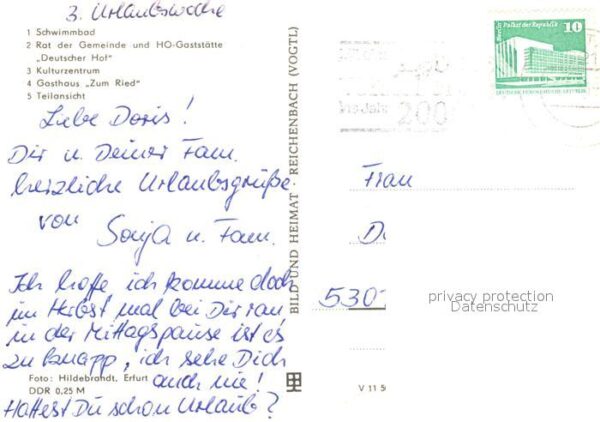 3. Urlaubswoche
1 Schwimmbad
2 Rat der Gemeinde und HO-Gaststätte
„Deutscher Hof"
3 Kulturzentrum
4 Gasthaus „Zum Ried"
5 Teilansicht
Liebe Doris!
Dir u. Deiner Fam.
herzliche Urlaubsgrüße
von
Sonja u. Fam.
Ich hoffe ich komme doch
im Herbst mal bei Dir ran
in der Mittagspause ist es
zu knapp, ich sehe Dich
auch nie!
Hattest Du schon Urlaub?
Foto: Hildebrandt, Erfurt
DDR 0,25 M
BILD UND HEIMAT · REICHENBACH (VOGTL)
V 11 50
Berlin Palast der Republik
10
200
Frau
D
530
privacy protection
Datenschutz